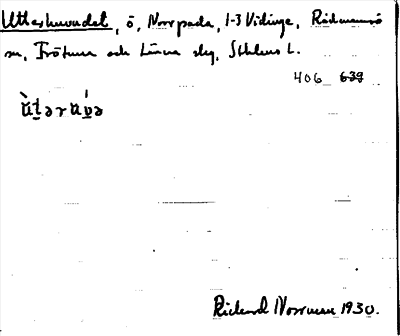 Utterhuvudet, ö, Norrpada, 1-3 Vidinge, Rådmansö
sn, Frötuna och Länna slg, Sthlms l.
406 639
Rickard Norrman 1930.